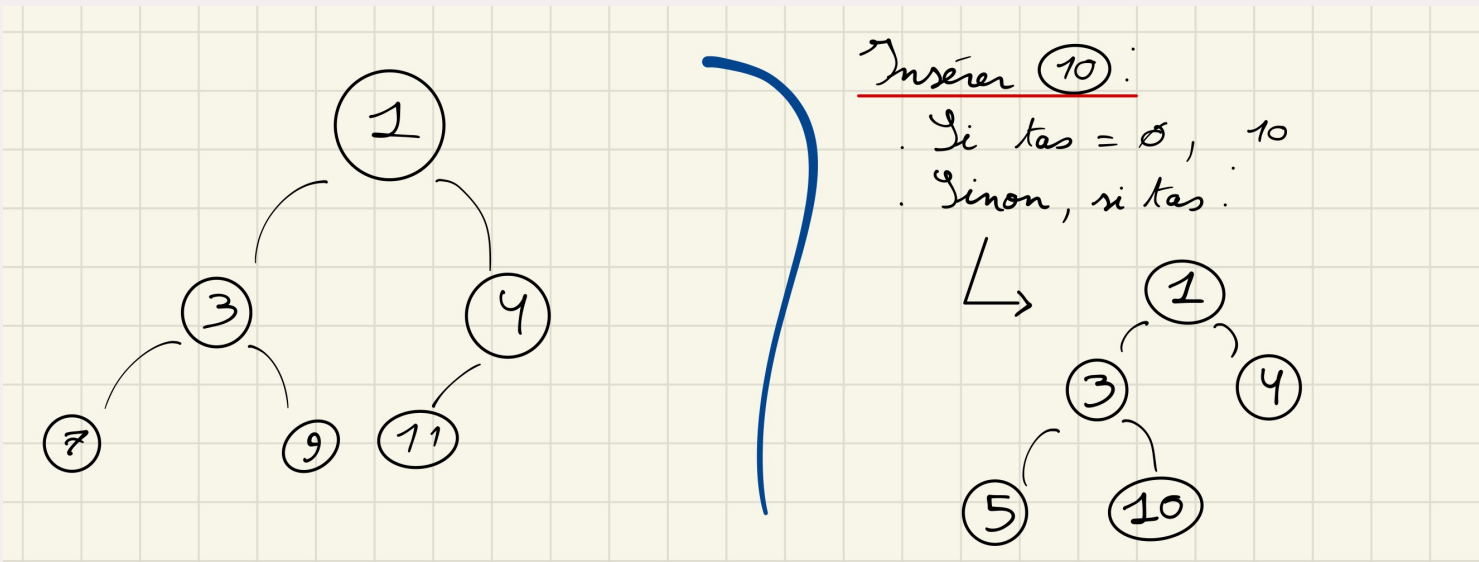 1
3 4
7 9 11
Insérer 10 :
. Si tas = ø, 10
. Sinon, si tas :
1
3 4
5 10